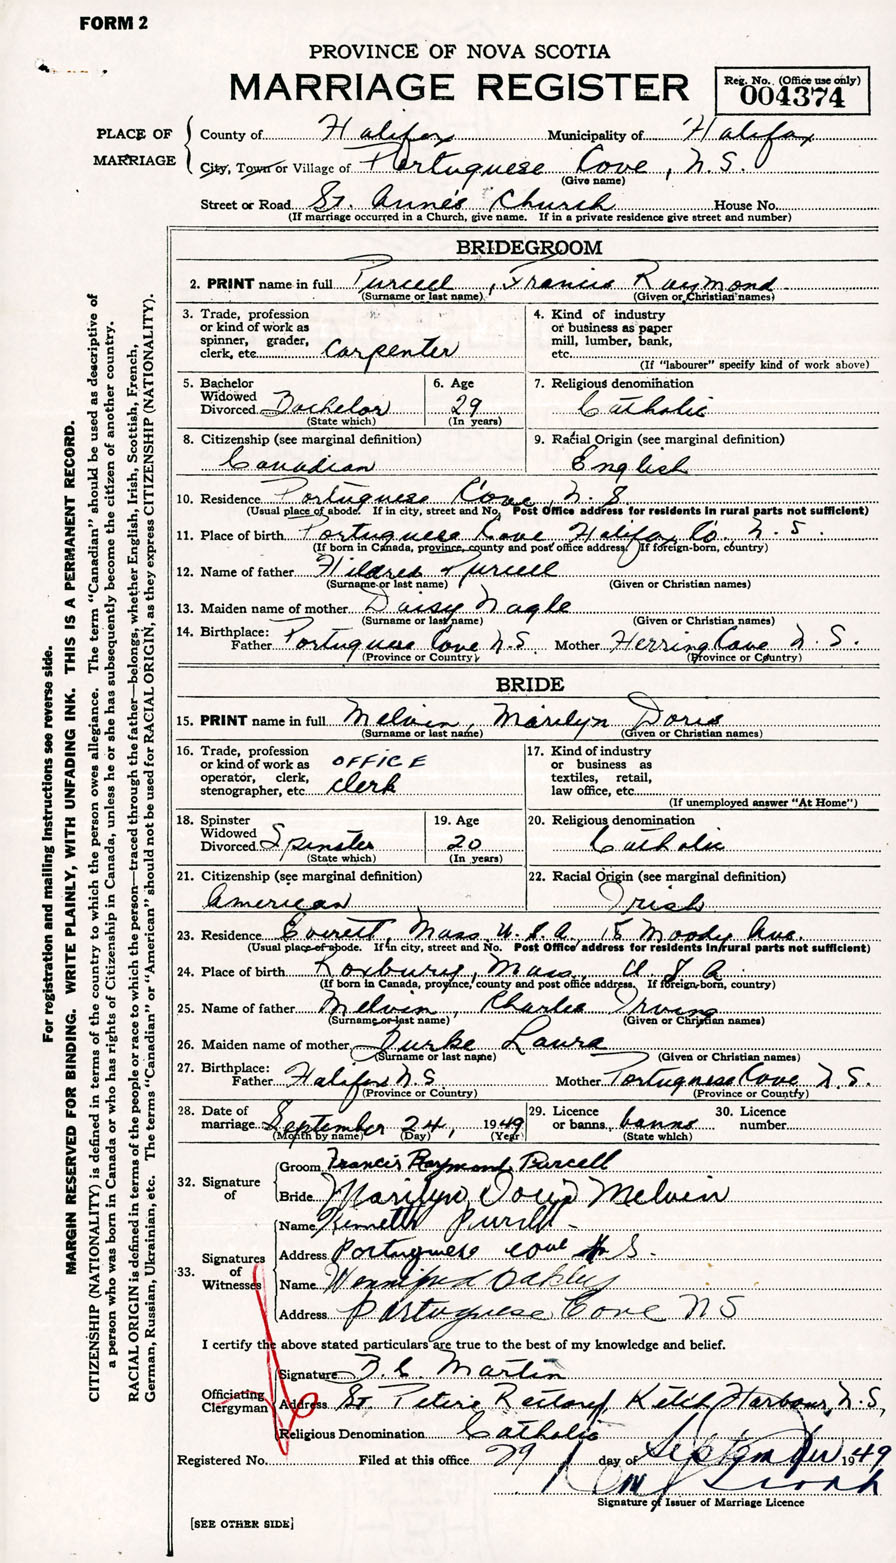 FORM 2
PROVINCE OF NOVA SCOTIA
MARRIAGE REGISTER
Reg. No. (Office use only)
004374
PLACE OF MARRIAGE
County of Halifax Municipality of Halifax
City, Town or Village of Portuguese Cove, N.S.
(Give name)
Street or Road St. Anne's Church House No.
(If marriage occurred in a Church, give name. If in a private residence give street and number)
BRIDEGROOM
2. PRINT name in full Purcell, Francis Raymond
(Surname or last name) (Given or Christian names)
3. Trade, profession or kind of work as spinner, grader, clerk, etc. Carpenter
4. Kind of industry or business as paper mill, lumber, bank, etc.
(If "labourer" specify kind of work above)
5. Bachelor Widowed Divorced Bachelor
(State which)
6. Age 29
(In years)
7. Religious denomination
Catholic
8. Citizenship (see marginal definition)
Canadian
9. Racial Origin (see marginal definition)
English
10. Residence Portuguese Cove, N.S.
(Usual place of abode. If in city, street and No. Post Office address for residents in rural parts not sufficient)
11. Place of birth Portuguese Cove Halifax Co. N.S.
(If born in Canada, province, county and post office address. If foreign-born, country)
12. Name of father Hildred Purcell
(Surname or last name) (Given or Christian names)
13. Maiden name of mother Daisy Nagle
(Surname or last name) (Given or Christian names)
14. Birthplace: Father Portuguese Cove N.S. Mother Herring Cove N.S.
(Province or Country) (Province or Country)
BRIDE
15. PRINT name in full Melvin, Marilyn Doris
(Surname or last name) (Given or Christian names)
16. Trade, profession or kind of work as operator, clerk, stenographer, etc. OFFICE Clerk
17. Kind of industry or business as textiles, retail, law office, etc.
(If unemployed answer "At Home")
18. Spinster Widowed Divorced Spinster
(State which)
19. Age 20
(In years)
20. Religious denomination
Catholic
21. Citizenship (see marginal definition)
American
22. Racial Origin (see marginal definition)
Irish
23. Residence Everett, Mass. U.S.A. 18 Moody Ave.
(Usual place of abode. If in city, street and No. Post Office address for residents in rural parts not sufficient)
24. Place of birth Roxbury, Mass. U.S.A.
(If born in Canada, province, county and post office address. If foreign-born, country)
25. Name of father Melvin, Charles Irving
(Surname or last name) (Given or Christian names)
26. Maiden name of mother Laura
(Surname or last name) (Given or Christian names)
27. Birthplace: Father Halifax N.S. Mother Portuguese Cove N.S.
(Province or Country) (Province or Country)
28. Date of marriage September 24, 1949
(Month by name) (Day) (Year)
29. Licence or banns banns
(State which)
30. Licence number
32. Signature of
Groom Francis Raymond Purcell
Bride Marilyn Doris Melvin
33. Signatures of Witnesses
Name Kenneth Purcell
Address Portuguese Cove N.S.
Name Winnifred Oakley
Address Portuguese Cove N S
I certify the above stated particulars are true to the best of my knowledge and belief.
Officiating Clergyman
Signature B.C. Martin
Address St. Peter's Rectory Ketch Harbour, N.S.
Religious Denomination Catholic
Registered No. Filed at this office 29 day of September 1949
Signature of Issuer of Marriage Licence
[SEE OTHER SIDE]
For registration and mailing instructions see reverse side.
MARGIN RESERVED FOR BINDING. WRITE PLAINLY, WITH UNFADING INK. THIS IS A PERMANENT RECORD.
CITIZENSHIP (NATIONALITY) is defined in terms of the country to which the person owes allegiance. The term "Canadian" should be used as descriptive of
a person who was born in Canada or who has rights of Citizenship in Canada, unless he or she has subsequently become the citizen of another country.
RACIAL ORIGIN is defined in terms of the people or race to which the person—traced through the father—belongs, whether English, Irish, Scottish, French,
German, Russian, Ukrainian, etc. The terms "Canadian" or "American" should not be used for RACIAL ORIGIN, as they express CITIZENSHIP (NATIONALITY).